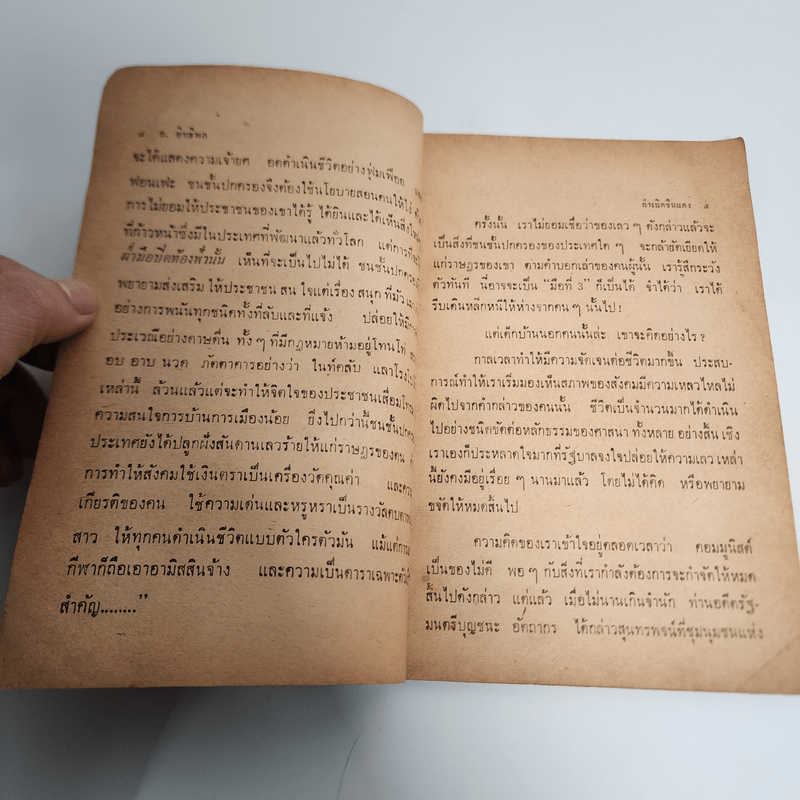 ๔ อ. อิทธิพล
จะได้แสดงความเจ้ายศ อดดำเนินชีวิตอย่างฟุ่มเฟือย
ฟอนเฟะ ชนชั้นปกครองจึงต้องใช้นโยบายสอนคนให้โง่
การไม่ยอมให้ประชาชนของเขาได้รู้ ได้ยินและได้เห็นสิ่งใหม่
ที่ก้าวหน้าซึ่งมีในประเทศที่พัฒนาแล้วทั่วโลก แต่การที่จะ
ฝ่ามือปิดท้องฟ้านั้น เห็นที่จะเป็นไปไม่ได้ ชนชั้นปกครอง
พยายามส่งเสริม ให้ประชาชน สน ใจแต่เรื่อง สนุก ที่มัว
อย่างการพนันทุกชนิดทั้งที่ลับและที่แจ้ง ปล่อยให้มี
ประเวณีอย่างดาษดื่น ทั้ง ๆ ที่มีกฎหมายห้ามอยู่โทนโท่
อบ อาบ นวด ภัตตาคารอย่างว่า ไนท์คลับ และโรง
เหล่านี้ ล้วนแล้วแต่จะทำให้จิตใจของประชาชนเสื่อม
ความสนใจการบ้านการเมืองน้อย ยิ่งไปกว่านี้ชนชั้นปกครอง
ประเทศยังได้ปลูกฝังสันดานเลวร้ายให้แก่ราษฎรของตน
การทำให้สังคมใช้เงินตราเป็นเครื่องวัดคุณค่า และความ
เกียรติของคน ใช้ความเด่นและหรูหราเป็นรางวัล
สาว ให้ทุกคนดำเนินชีวิตแบบตัวใครตัวมัน แม้แต่การ
กีฬาก็ถือเอาอามิสสินจ้าง และความเป็นดาราเฉพาะตัว
สำคัญ........”
กำเนิดซินแดง ๕
ครั้งนั้น เราไม่ยอมเชื่อว่าของเลว ๆ ดังกล่าวแล้วจะ
เป็นสิ่งที่ชนชั้นปกครองของประเทศใด ๆ จะกล้ายัดเยียดให้
แก่ราษฎรของเขา ตามคำบอกเล่าของคนผู้นั้น เรารู้สึกระวัง
ตัวทันที นี่อาจจะเป็น ‘มือที่ 3’ ก็เป็นได้ จำได้ว่า เราได้
รีบเดินหลีกหนีให้ห่างจากคน ๆ นั้นไป !
แต่เด็กบ้านนอกคนนั้นล่ะ เขาจะคิดอย่างไร ?
กาลเวลาทำให้มีความจัดเจนต่อชีวิตมากขึ้น ประสบ-
การณ์ทำให้เราเริ่มมองเห็นสภาพของสังคมมีความเหลวไหลไม่
ผิดไปจากคำกล่าวของคนนั้น ชีวิตเป็นจำนวนมากได้ดำเนิน
ไปอย่างชนิดขัดต่อหลักธรรมของศาสนา ทั้งหลาย อย่างสิ้น เชิง
เราเองก็ประหลาดใจมากที่รัฐบาลจงใจปล่อยให้ความเลว เหล่า
นี้ยังคงมีอยู่เรื่อย ๆ นานมาแล้ว โดยไม่ได้คิด หรือพยายาม
ขจัดให้หมดสิ้นไป
ความคิดของเราเข้าใจอยู่ตลอดเวลาว่า คอมมูนิสต์
เป็นของไม่ดี พอ ๆ กับสิ่งที่เรากำลังต้องการจะกำจัดให้หมด
สิ้นไปดังกล่าว แต่แล้ว เมื่อไม่นานเกินจำนัก ท่านอดีตรัฐ-
มนตรีบุญชนะ อัตถากร ได้กล่าวสุนทรพจน์ที่ชุมนุมชนแห่ง